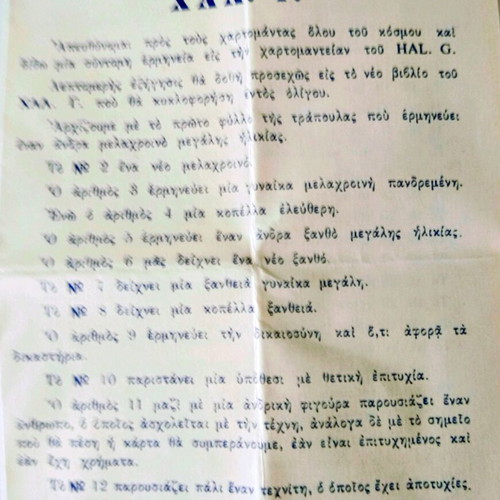 Ἀπευθύνομαι πρὸς τοὺς χαρτομάντας ὅλου τοῦ κόσμου καὶ
δίδω μία σύντομη ἑρμηνεία εἰς τὴν χαρτομαντείαν τοῦ HAL. G.
Λεπτομερὴς ἐξήγησις θὰ δοθῇ προσεχῶς εἰς τὸ νέο βιβλίο τοῦ
ΧΑΛ. Γ. ποὺ θὰ κυκλοφορήσῃ ἐντὸς ὀλίγου.
Ἀρχίζουμε μὲ τὸ πρῶτο φύλλο τῆς τράπουλας ποὺ ἑρμηνεύει
ἕναν ἄνδρα μελαχροινὸ μεγάλης ἡλικίας.
Τὸ № 2 ἕνα νέο μελαχροινό.
Ὁ ἀριθμὸς 3 ἑρμηνεύει μία γυναίκα μελαχροινὴ πανδρεμένη.
Ἐνῶ ὁ ἀριθμὸς 4 μία κοπέλλα ἐλεύθερη.
Ὁ ἀριθμὸς 5 ἑρμηνεύει ἕναν ἄνδρα ξανθὸ μεγάλης ἡλικίας.
Ὁ ἀριθμὸς 6 μᾶς δείχνει ἕνα νέο ξανθό.
Τὸ № 7 δείχνει μία ξανθειὰ γυναίκα μεγάλη.
Τὸ № 8 δείχνει μία κοπέλλα ξανθειά.
Ὁ ἀριθμὸς 9 ἑρμηνεύει τὴν δικαιοσύνη καὶ ὅ,τι ἀφορᾷ τὰ
δικαστήρια.
Τὸ № 10 παριστάνει μία ὑπόθεσι μὲ θετικὴ ἐπιτυχία.
Ὁ ἀριθμὸς 11 μαζὶ μὲ μία ἀνδρικὴ φιγούρα παρουσιάζει ἕναν
ἄνθρωπο, ὁ ὁποῖος ἀσχολεῖται μὲ τὴν τέχνη, ἀνάλογα δὲ μὲ τὸ σημεῖο
ποὺ θὰ πέσῃ ἡ κάρτα θὰ συμπεράνουμε, ἐὰν εἶναι ἐπιτυχημένος καὶ
ἐὰν ἔχῃ χρήματα.
Τὸ № 12 παρουσιάζει πάλι ἕναν τεχνίτη, ὁ ὁποῖος ἔχει ἀποτυχίες.